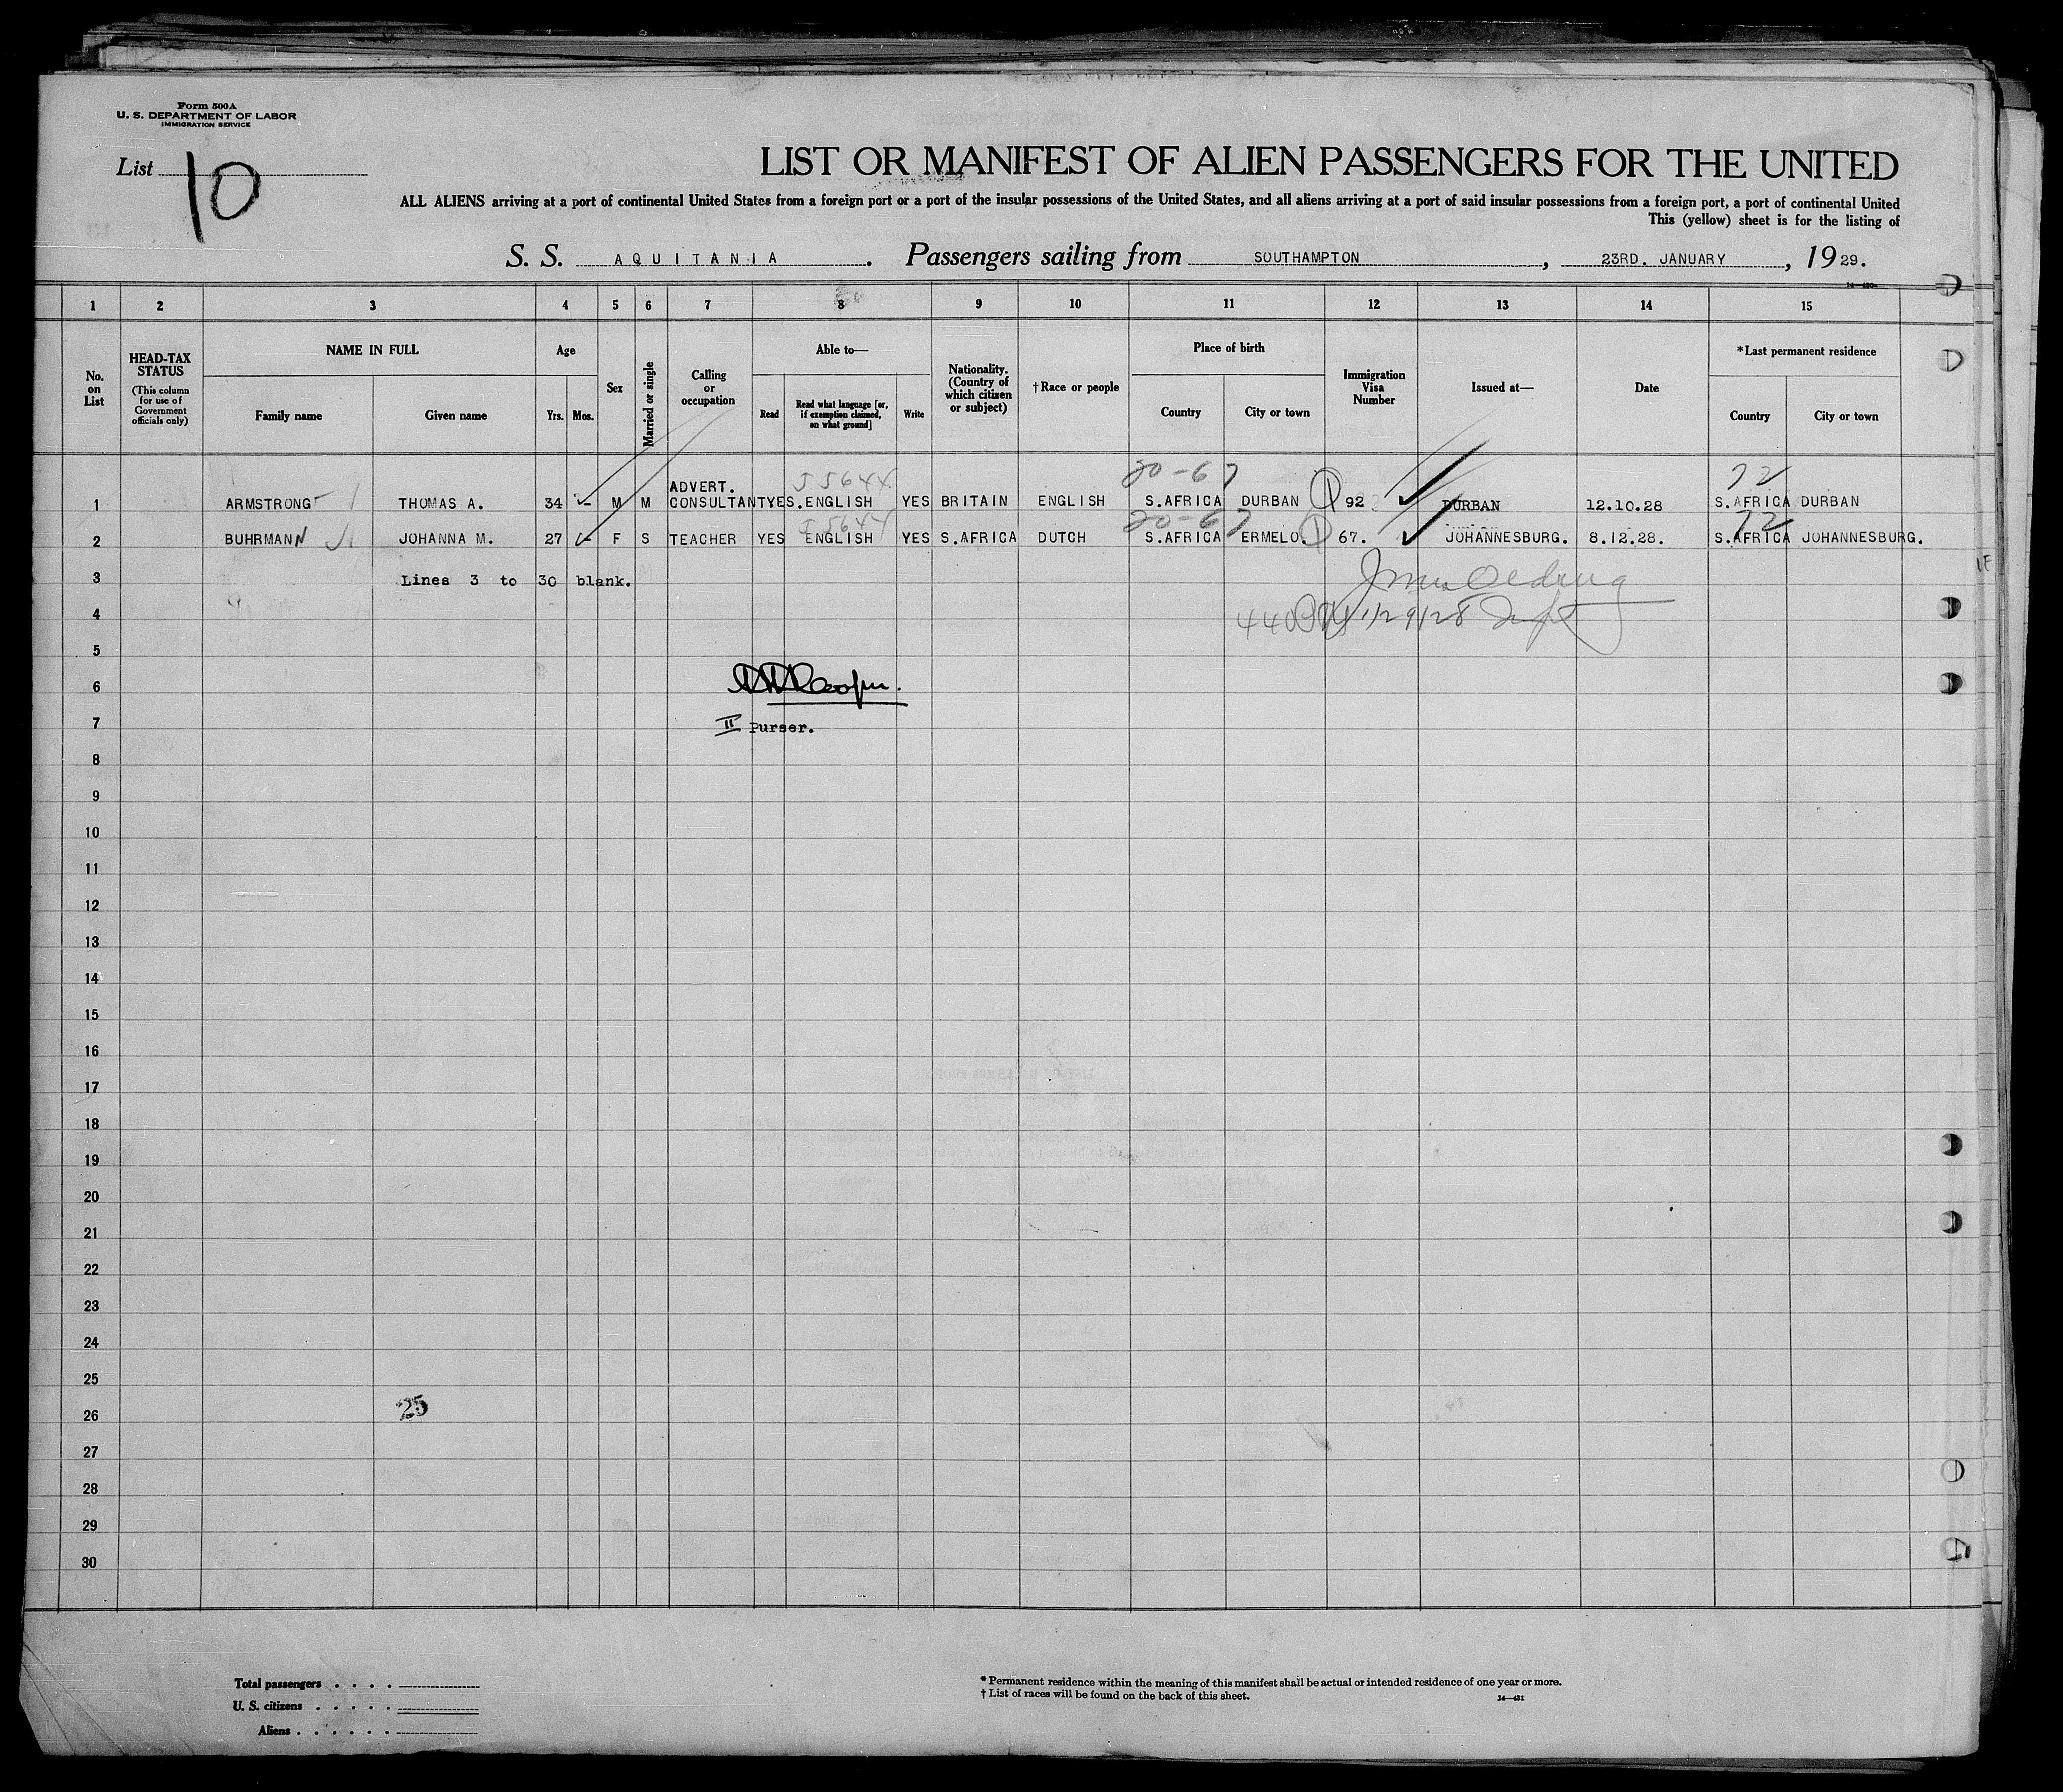 Form 500A
U. S. DEPARTMENT OF LABOR
IMMIGRATION SERVICE
List 10
LIST OR MANIFEST OF ALIEN PASSENGERS FOR THE UNITED
ALL ALIENS arriving at a port of continental United States from a foreign port or a port of the insular possessions of the United States, and all aliens arriving at a port of said insular possessions from a foreign port, a port of continental United
This (yellow) sheet is for the listing of
S. S. AQUITANIA. Passengers sailing from SOUTHAMPTON, 23RD. JANUARY, 1929.
1 2 3 4 5 6 7 8 9 10 11 12 13 14 15
No. on List
HEAD-TAX STATUS
(This column for use of Government officials only)
NAME IN FULL
Family name Given name
Age
Yrs. Mos.
Sex
Married or single
Calling or occupation
Able to—
Read
Read what language [or, if exemption claimed, on what ground]
Write
Nationality. (Country of which citizen or subject)
†Race or people
Place of birth
Country City or town
Immigration Visa Number
Issued at—
Date
*Last permanent residence
Country City or town
55644 20-67 72
1 ARMSTRONG THOMAS A. 34 - M M ADVERT. CONSULTANT YES. ENGLISH YES BRITAIN ENGLISH S.AFRICA DURBAN 1 92 DURBAN 12.10.28 S.AFRICA DURBAN
55644 20-67 72
2 BUHRMANN JOHANNA M. 27 - F S TEACHER YES ENGLISH YES S.AFRICA DUTCH S.AFRICA ERMELO. 1 67. JOHANNESBURG. 8.12.28. S.AFRICA JOHANNESBURG.
3 Lines 3 to 30 blank.
4 1/29/28
5
6
7 II Purser.
8
9
10
11
12
13
14
15
16
17
18
19
20
21
22
23
24
25
26 25
27
28
29
30
Total passengers . . . .
U. S. citizens . . . . .
Aliens . . . . . .
* Permanent residence within the meaning of this manifest shall be actual or intended residence of one year or more.
† List of races will be found on the back of this sheet.
14—431